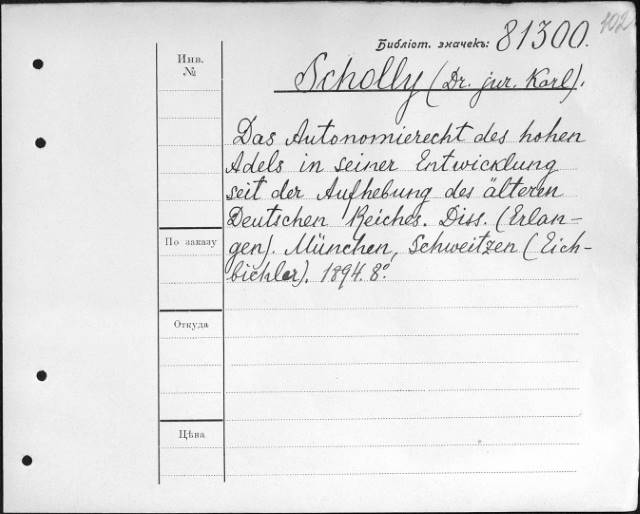 402
Библіот. значекъ: 81300.
Инв.
№
Scholly (Dr. jur. Karl).
Das Autonomierecht des hohen
Adels in seiner Entwicklung
seit der Aufhebung des älteren
Deutschen Reiches. Diss. (Erlan-
gen). München, Schweitzen (Eich-
bichler). 1894. 8º.
По заказу
Откуда
Цѣна